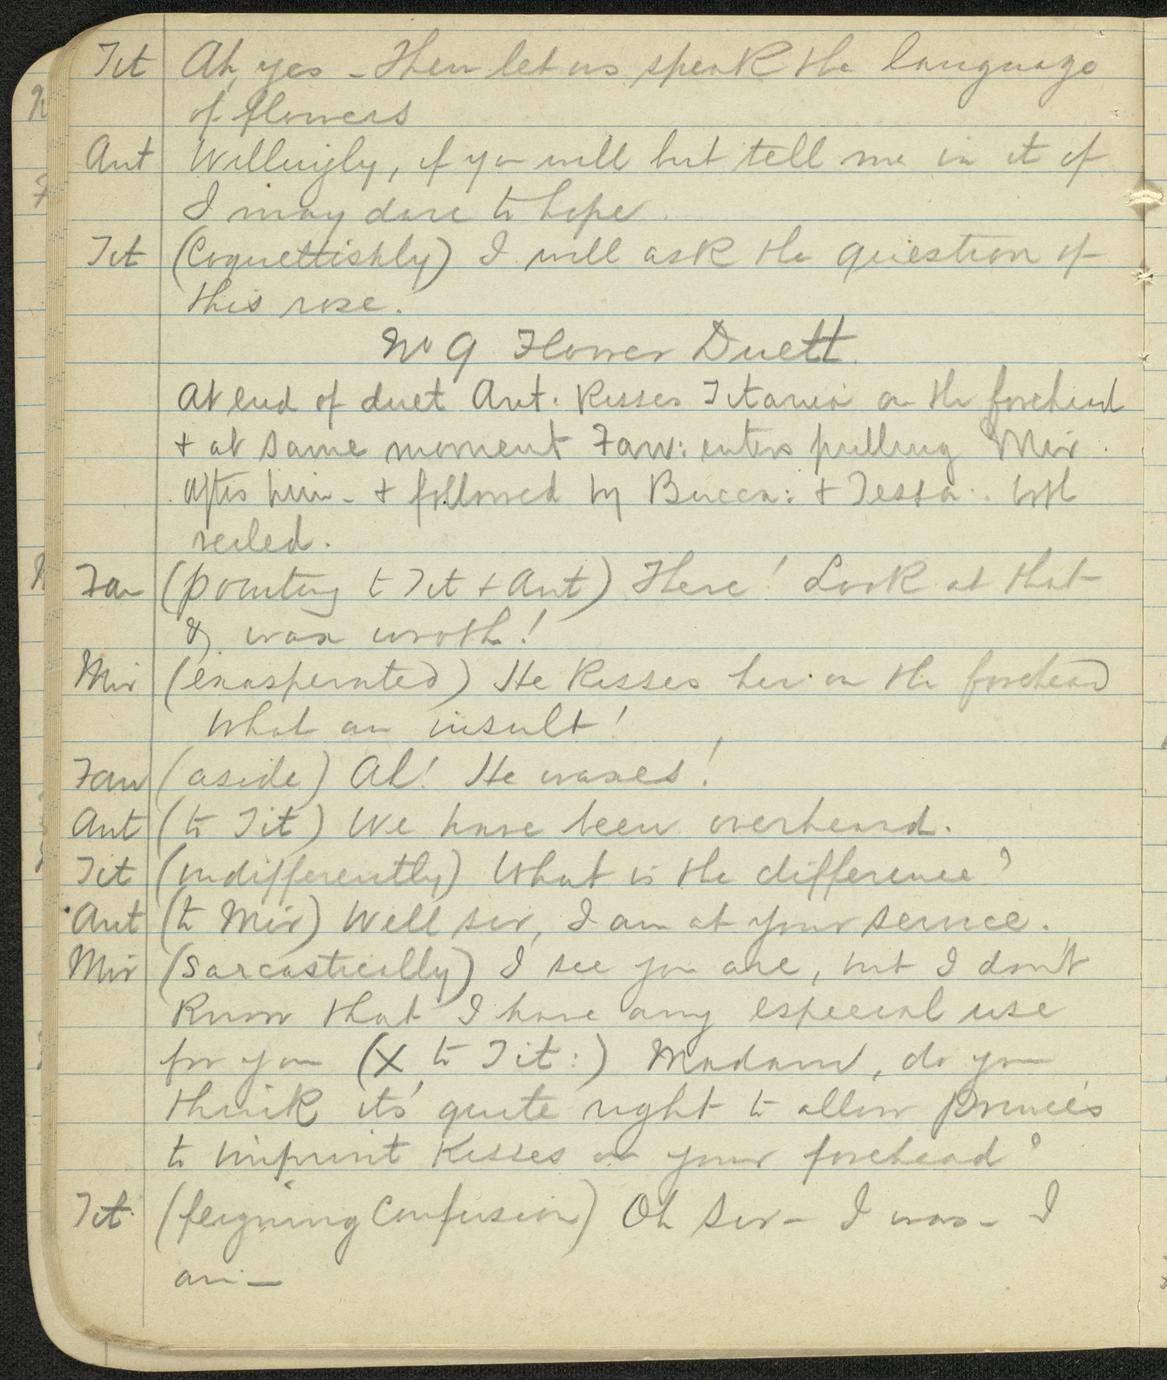 Tit Ah, yes - Then let us speak the language
of flowers
Ant Willingly, if you will but tell me in it if
I may dare to hope.
Tit (Coquettishly) I will ask the question of
this rose.
No 9 Flower Duett.
At end of duet Ant. Kisses Titania on the forehead
+ at same moment Faw: enters pulling Mir.
after him - + followed by Bucca: + Tessa. both
veiled.
Faw (pointing to Tit + Ant) There! Look at that
& wax wroth!
Mir (exasperated) He Kisses her on the forehead
What an insult!
Faw (aside) Ah! He waxes!
Ant (to Tit) We have been overheard.
Tit (indifferently) What is the difference?
Ant (to Mir) Well sir, I am at your service.
Mir (Sarcastically) I see you are, but I don't
Know that I have any especial use
for you (X to Tit:) Madam, do you
think its' quite right to allow Princes
to imprint Kisses on your forehead?
Tit (feigning Confusion) Oh Sir - I was - I
am -